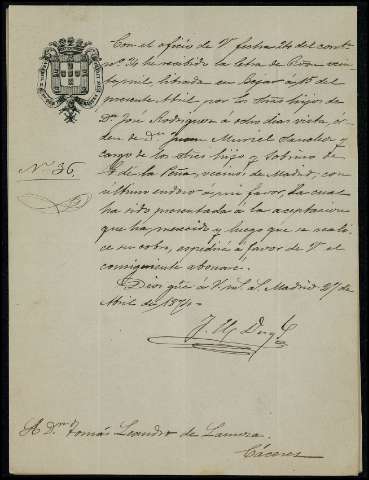 Con el oficio de V fecha 24 del corrte
nº 24 he recibido la letra de Rvon vein
te mil, librada en Bejar á 18 del
presente Abril por los Sres hijos de
Dn José Rodriguez á ocho dias vista ór-
den de Dn Juan Muriel Sanchez y
cargo de los Sres hijo y Sobrino de
de la Peña, vecinos de Madrid, con
último endoso á mi favor, la cual
ha sido presentada á la aceptacion
que ha merecido y luego que se reali-
ce su cobro, expediré á favor de V el
consiguiente abonaré.
Dios gue á V ms. as. Madrid 27 de
Abril de 1874.
Nº 36.
A Dn Tomás Leandro de Lamora.
Cáceres